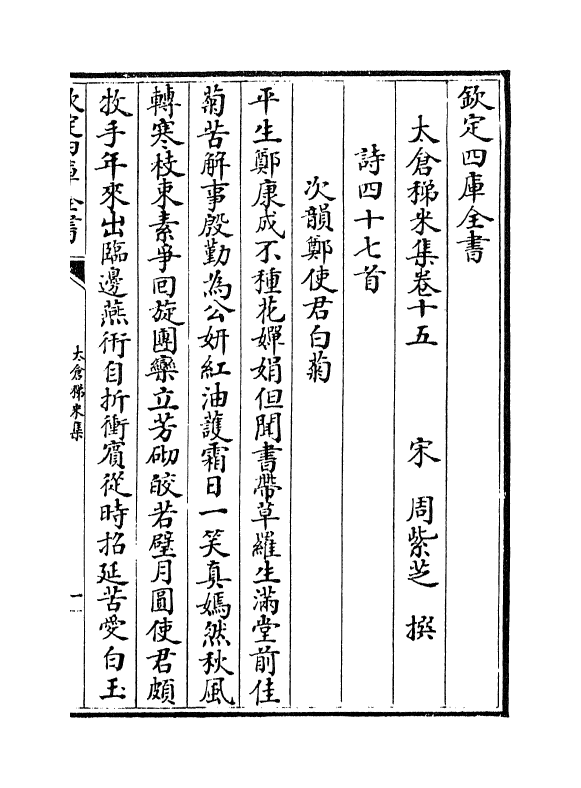 欽定四庫全書
太倉稊米集卷十五　宋　周紫芝　撰
詩四十七首
次韻鄭使君白菊
平生鄭康成不種花嬋娟但聞書帶草羅生滿堂前佳
菊苦解事殷勤為公妍紅油護霜日一笑真嫣然秋風
轉寒枝東素爭回旋團欒立芳砌皎若璧月圓使君頗
牧手年來出臨邊燕衎自折衝賓從時招延苦愛白玉
欽定四庫全書
太倉稊米集
一